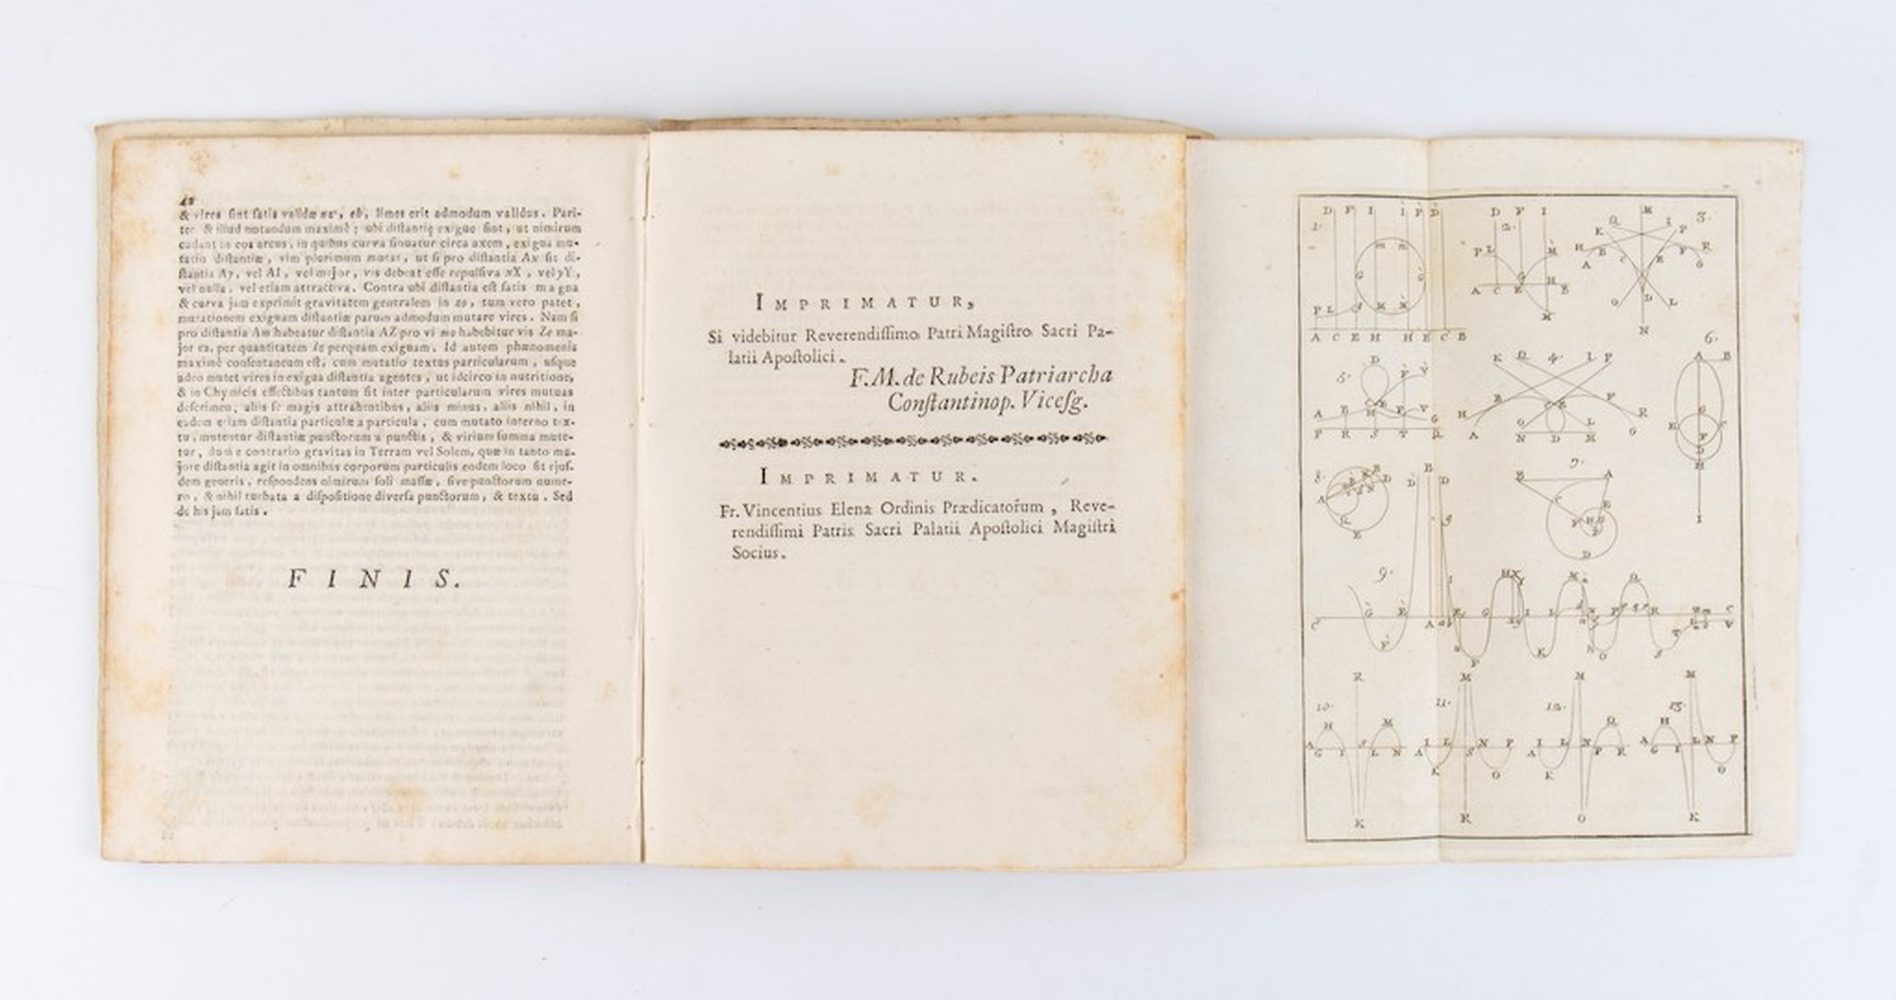 42
& vires sint satis validæ , eb, limes erit admodum validus. Pari-
ter & illud notandum maximè; ubi distantię exiguę sint, ut nimirum
cadant in eos arcus, in quibus curva sinuatur circa axem, exigua mu-
tatio distantiæ, vim plurimum mutat, ut si pro distantia Ax sit di-
stantia Ay, vel AI, vel major, vis debeat esse repulsiva xX, vel yY,
vel nulla, vel etiam attractiva. Contra ubi distantia est satis magna
& curva jam exprimit gravitatem generalem in , tum vero patet,
mutationem exiguam distantiæ parum admodum mutare vires. Nam si
pro distantia Am habeatur distantia AZ pro vi habebitur vis Ze ma-
jor ea, per quantitatem perquam exiguam. Id autem phænomenis
maximè consentaneum est, cum mutatio textus particularum, usque
adeo mutet vires in exigua distantia agentes, ut idcirco in nutritione,
& in Chymicis effectibus tantum sit inter particularum vires mutuas
descrimen, aliis se magis attrahentibus, aliis minus, aliis nihil, in
eadem etiam distantia particulæ a particula, cum mutato interno tex-
tu, mutentur distantiæ punctorum a punctis, & virium summa mute-
tur, dum e contrario gravitas in Terram vel Solem, quæ in tanto ma-
jore distantia agit in omnibus corporum particulis eodem loco sit ejus-
dem generis, respondens nimirum soli massæ, sive punctorum nume-
ro, & nihil turbata a dispositione diversa punctorum, & textu. Sed
de his jam satis.
FINIS.
IMPRIMATUR,
Si videbitur Reverendissimo Patri Magistro Sacri Pa-
latii Apostolici.
F.M. de Rubeis Patriarcha
Constantinop. Vicesg.
IMPRIMATUR.
Fr. Vincentius Elena Ordinis Prædicatorum, Reve-
rendissimi Patris Sacri Palatii Apostolici Magistri
Socius.
D F I I F D
1.
m m
G G
P L M N
A C E H H E C B
D F I
2.
P L M
G
A C E H B
M
M
3.
Q I
K P
H B C E F R
A G
O D L
N
D
5.
A B H F V
P R S T
K Q 4. I P
H B C E F R
A O L G
N D M
6.
A B
G
E C
F
D
H
I
8.
B
D
A
E
7.
B A
C
F H G
D
9.
B
D D
C G E A
F
G I L
H X Y
F K
M Q
N P R
O S T
C
V
10.
R
H M
A G I S L N
K
11.
M
A I L S N P
K O
R
12.
M
A I L N P R
K Q
O
13.
M
H
A G I L N P
O
K